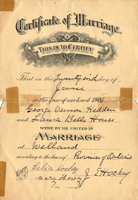 Certificate of Marriage.
THIS IS TO CERTIFY
That on the Twenty third day of
June
in the year of our Lord 190
George Vernon Hedden
and Laura Belle House
WERE BY ME UNITED IN
MARRIAGE
at Welland
according to the laws of Province of Ontario